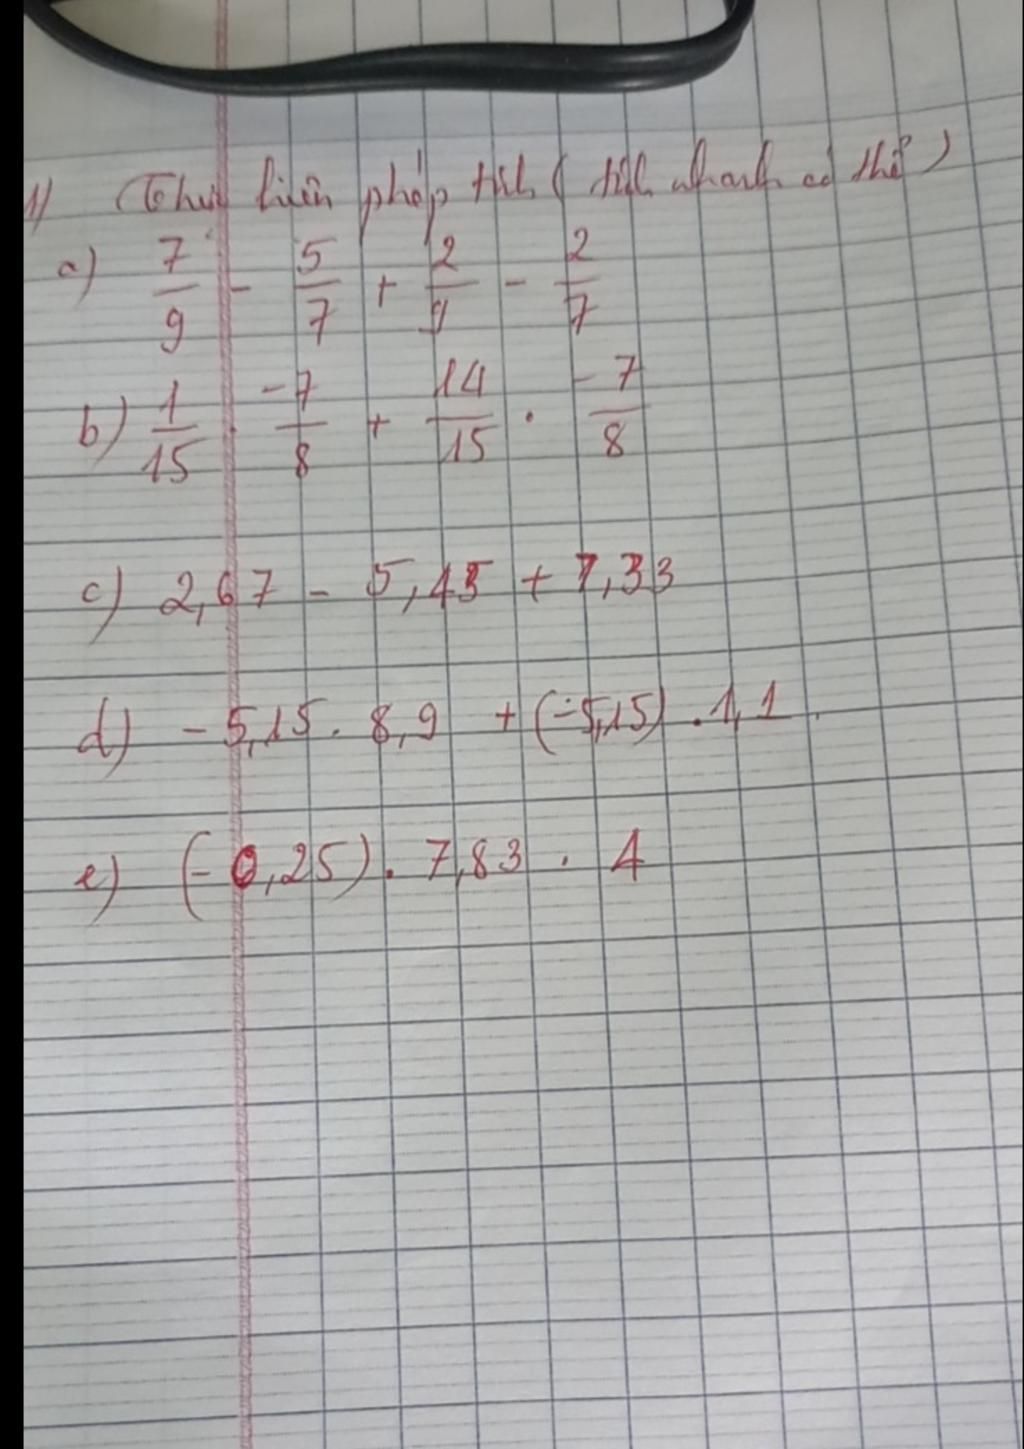 1) Thực hiện phép tính ( tính nhanh có thể )
a) 7/9 - 5/7 + 2/9 - 2/7
b) 1/15 . -7/8 + 14/15 . -7/8
c) 2,67 - 5,45 + 7,33
d) - 5,15 . 8,9 + (-5,15) . 1,1
e) (- 0,25) . 7,83 . 4